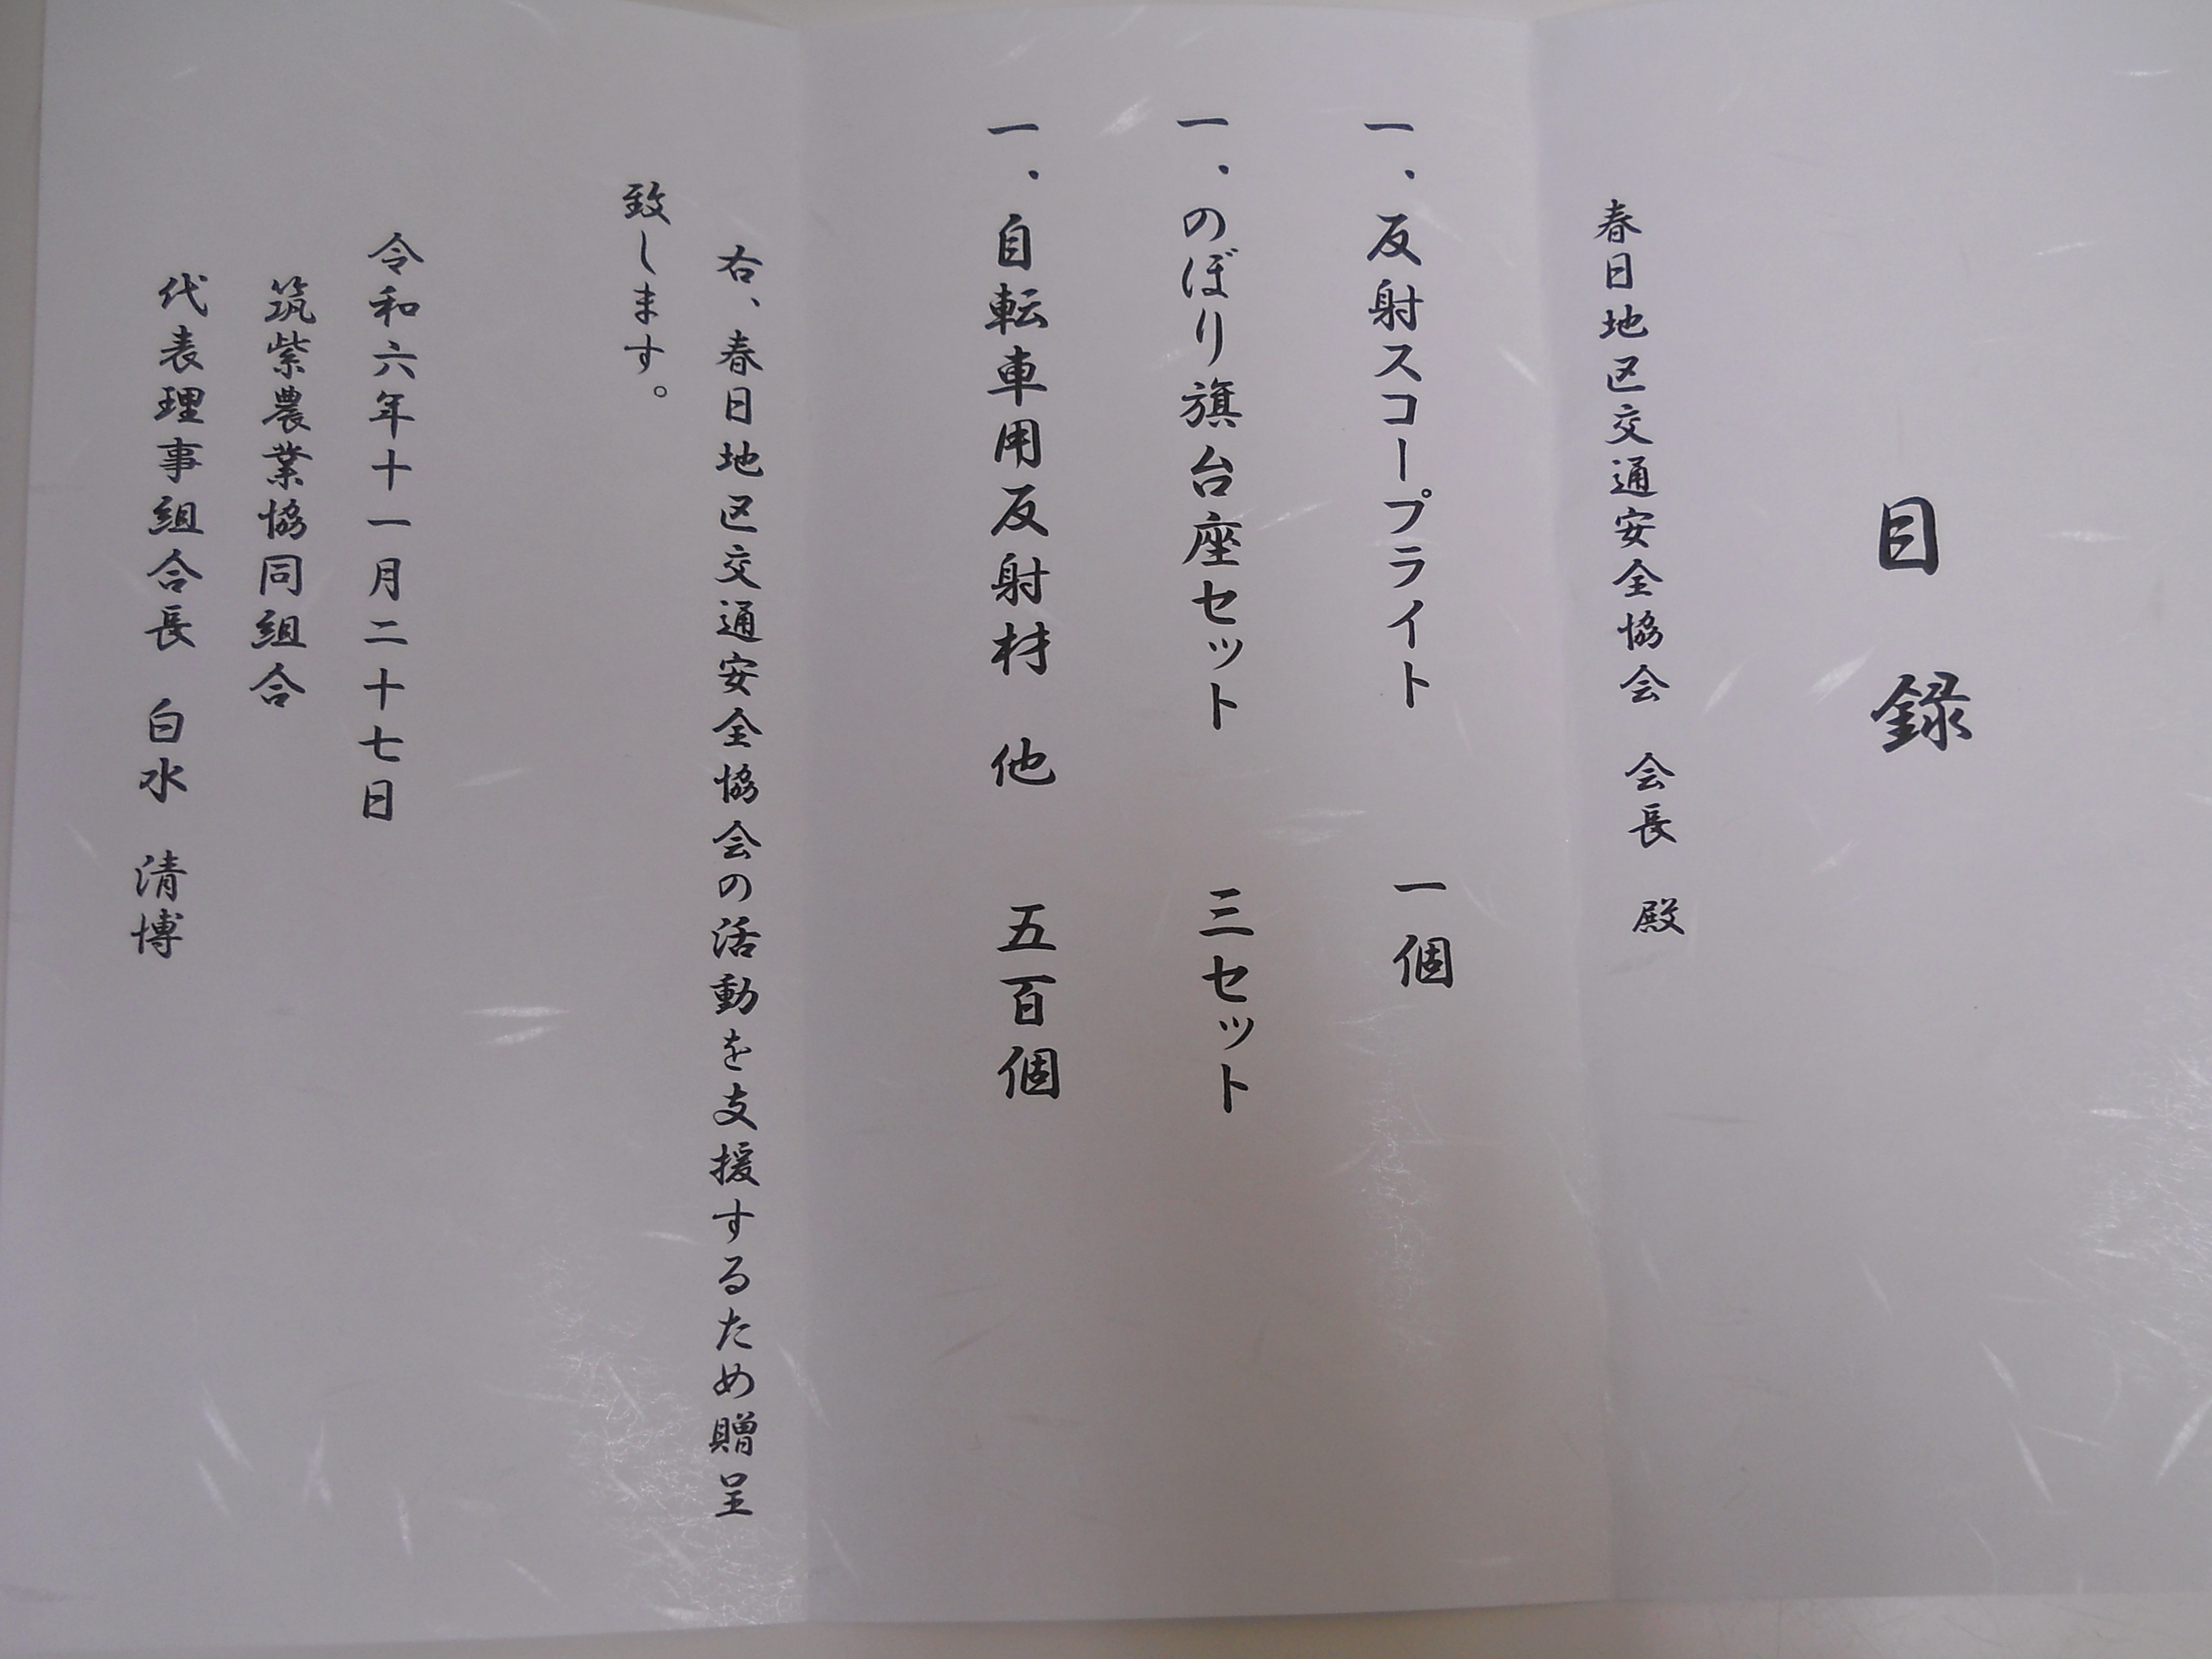 目 録
春日地区交通安全協会 会長 殿
一．反射スコープライト 一個
一．のぼり旗台座セット 三セット
一．自転車用反射材 他 五百個
右、春日地区交通安全協会の活動を支援するため贈呈
致します。
令和六年十一月二十七日
筑紫農業協同組合
代表理事組合長 白水 清博